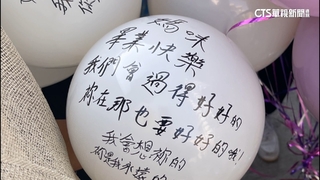 CTS華視新聞
媽咪
畢業快樂
我們會過得好好的
祢在那也要好好的哦!
我會想祢的
祢是我永遠的